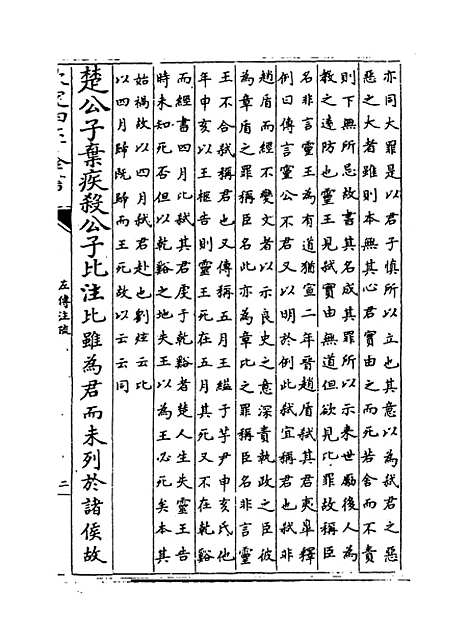 亦同大罪是以君子慎所以立也其意以為弑君之惡
惡之大者雖則本無其心君實由之而死若舍而不責
則下無所忌故書其名成其罪所以示來世勵後人為
教之遠防也靈王見弑實由無道但欲見比罪故稱臣
名非言靈王為有道猶宣二年晉趙盾弑其君夷皐釋
例曰傳言靈公不君又以明於例此弑宜稱君也弑非
趙盾而經不變文者以示良史之意深責執政之臣彼
為章盾之罪稱臣名此亦為章比之罪稱臣名非言靈
王不合弑稱君也又傳稱五月王縊于芋尹申亥氏他
年申亥以王柩告則靈王死在五月其死又不在乾谿
而經書四月比弑其君虔于乾谿者楚人生失靈王告
時未知死否但以乾谿之地失王以為王必死矣本其
始禍故以四月弑君赴也劉炫云比
以四月歸既歸而王死故以云云同
楚公子棄疾殺公子比注比雖為君而未列於諸侯故
左傳注疏
二